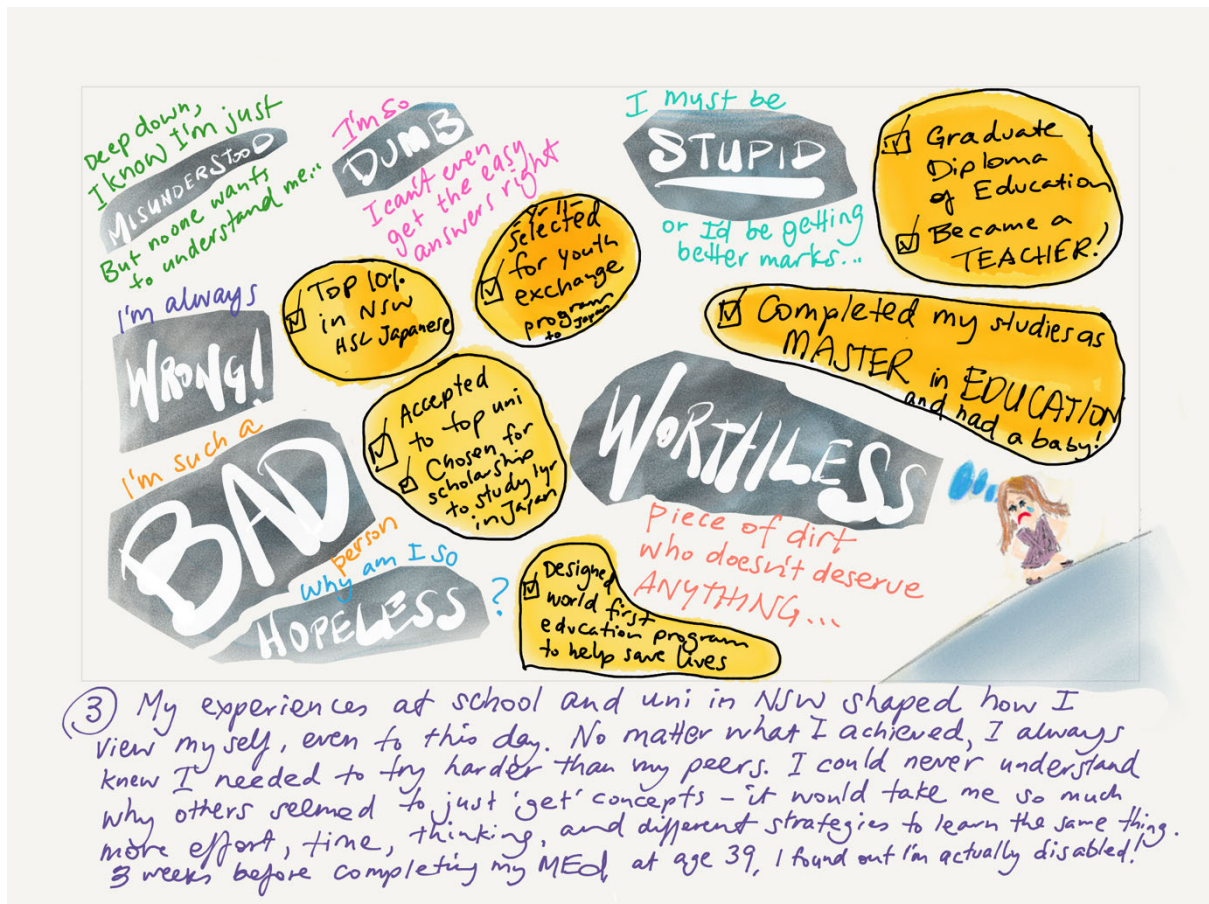 Deep down,
I know I'm just
MISUNDERSTOOD
But no one wants
to understand me...
I'm so
DUMB
I can't even
get the easy
answers right
I must be
STUPID
or I'd be getting
better marks...
Graduate
Diploma
of Education
Became a
TEACHER!
I'm always
WRONG!
Top 10%
in NSW
HSC Japanese
selected
for youth
exchange
program
to
Japan
Completed my studies as
MASTER in EDUCATION
and had a baby!
I'm such a
BAD
person
Accepted
to top uni
Chosen for
scholarship
to study 1yr
in Japan
WORTHLESS
piece of dirt
who doesn't deserve
ANYTHING...
why am I so
HOPELESS ?
Designed
world first
education program
to help save lives
3 My experiences at school and uni in NSW shaped how I
view myself, even to this day. No matter what I achieved, I always
knew I needed to try harder than my peers. I could never understand
why others seemed to just 'get' concepts – it would take me so much
more effort, time, thinking, and different strategies to learn the same thing.
3 weeks before completing my MEd, at age 39, I found out I'm actually disabled!